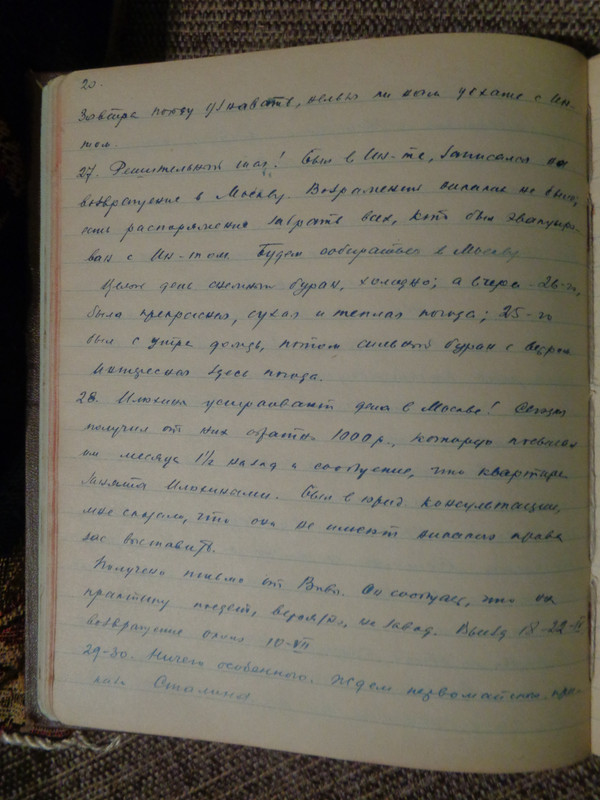 20.
Завтра пойду узнавать, нельзя ли нам уехать с Ин-
том.
27. Решительный шаг! Был в Ин-те, записался на
возвращение в Москву. Возражений никаких не было,
есть распоряжение забрать всех, кто был эвакуиро-
ван с Ин-том. Будем собираться в Москву
Целый день снежный буран, холодно; а вчера - 26-го,
была прекрасная, сухая и теплая погода; 25-го
был с утра дождь, потом сильный буран с
Интересная здесь погода.
28. Илюхины устраивают дела в Москве! Сегодня
получил от них обратно 1000 р., которую посылал
им месяца 1½ назад и сообщение, что квартира
занята Илюхинами. Был в юрид. консультации,
мне сказали, что они не имеют никакого права
нас выставить.
Получено письмо от Вовы. Он сообщает, что на
практику поедет, вероятно, на завод. Выезд 18-22-
возвращение около 10-VII
29-30. Ничего особенного. Ждем первомайского при-
каза Сталина